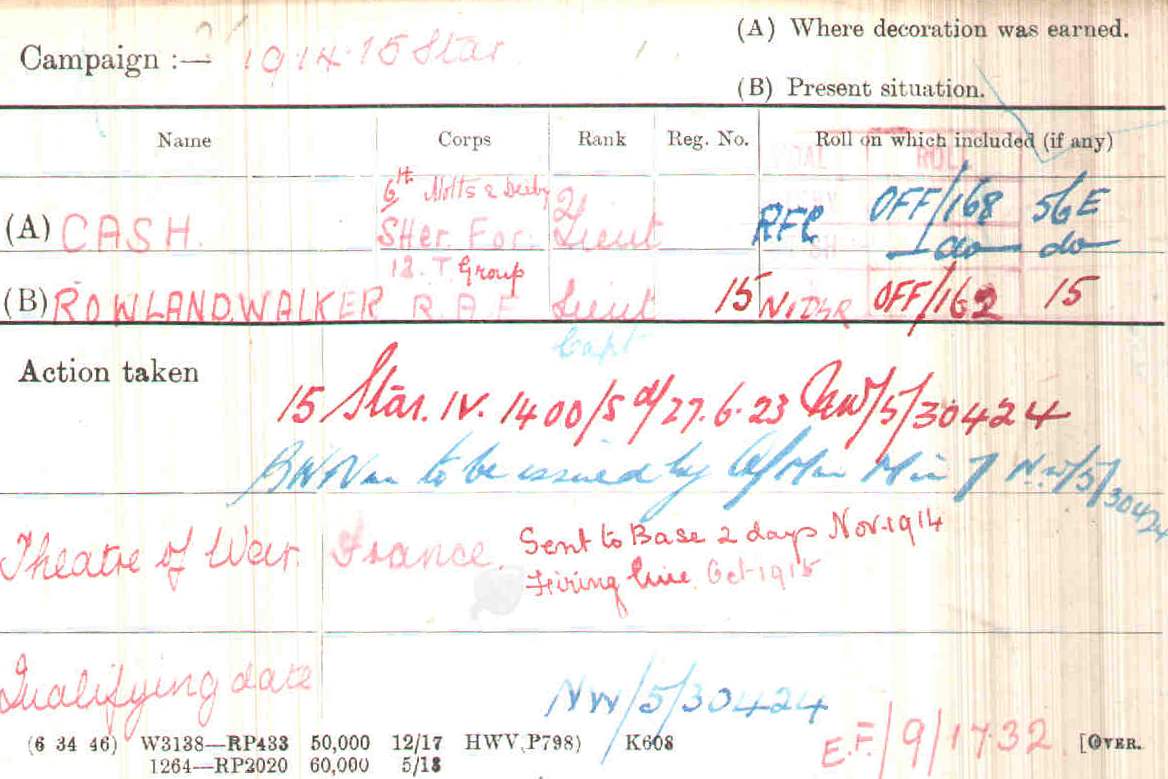 Campaign :— 1914·15 Star.
(A) Where decoration was earned.
(B) Present situation.
Name Corps Rank Reg. No. Roll on which included (if any)
6th Notts & Derby 2/
(A) CASH. SHer. For. Lieut RFC OFF/168 56E
do do
12. T Group
(B) ROWLAND.WALKER R.A.F Lieut 15 OFF/162 15
Capt
Action taken
15 Star. IV. 1400/5 d/27.6.23 NW/5/30424
to be issued by NW/5/30424
Theatre of War. France. Sent to Base 2 days Nov-1914
Firing line. Oct-1915
Qualifying date NW/5/30424
(6 34 46) W3138—RP433 50,000 12/17 HWV(P798) K608 E.F./9/1732 [OVER.
1264—RP2020 60,000 5/18